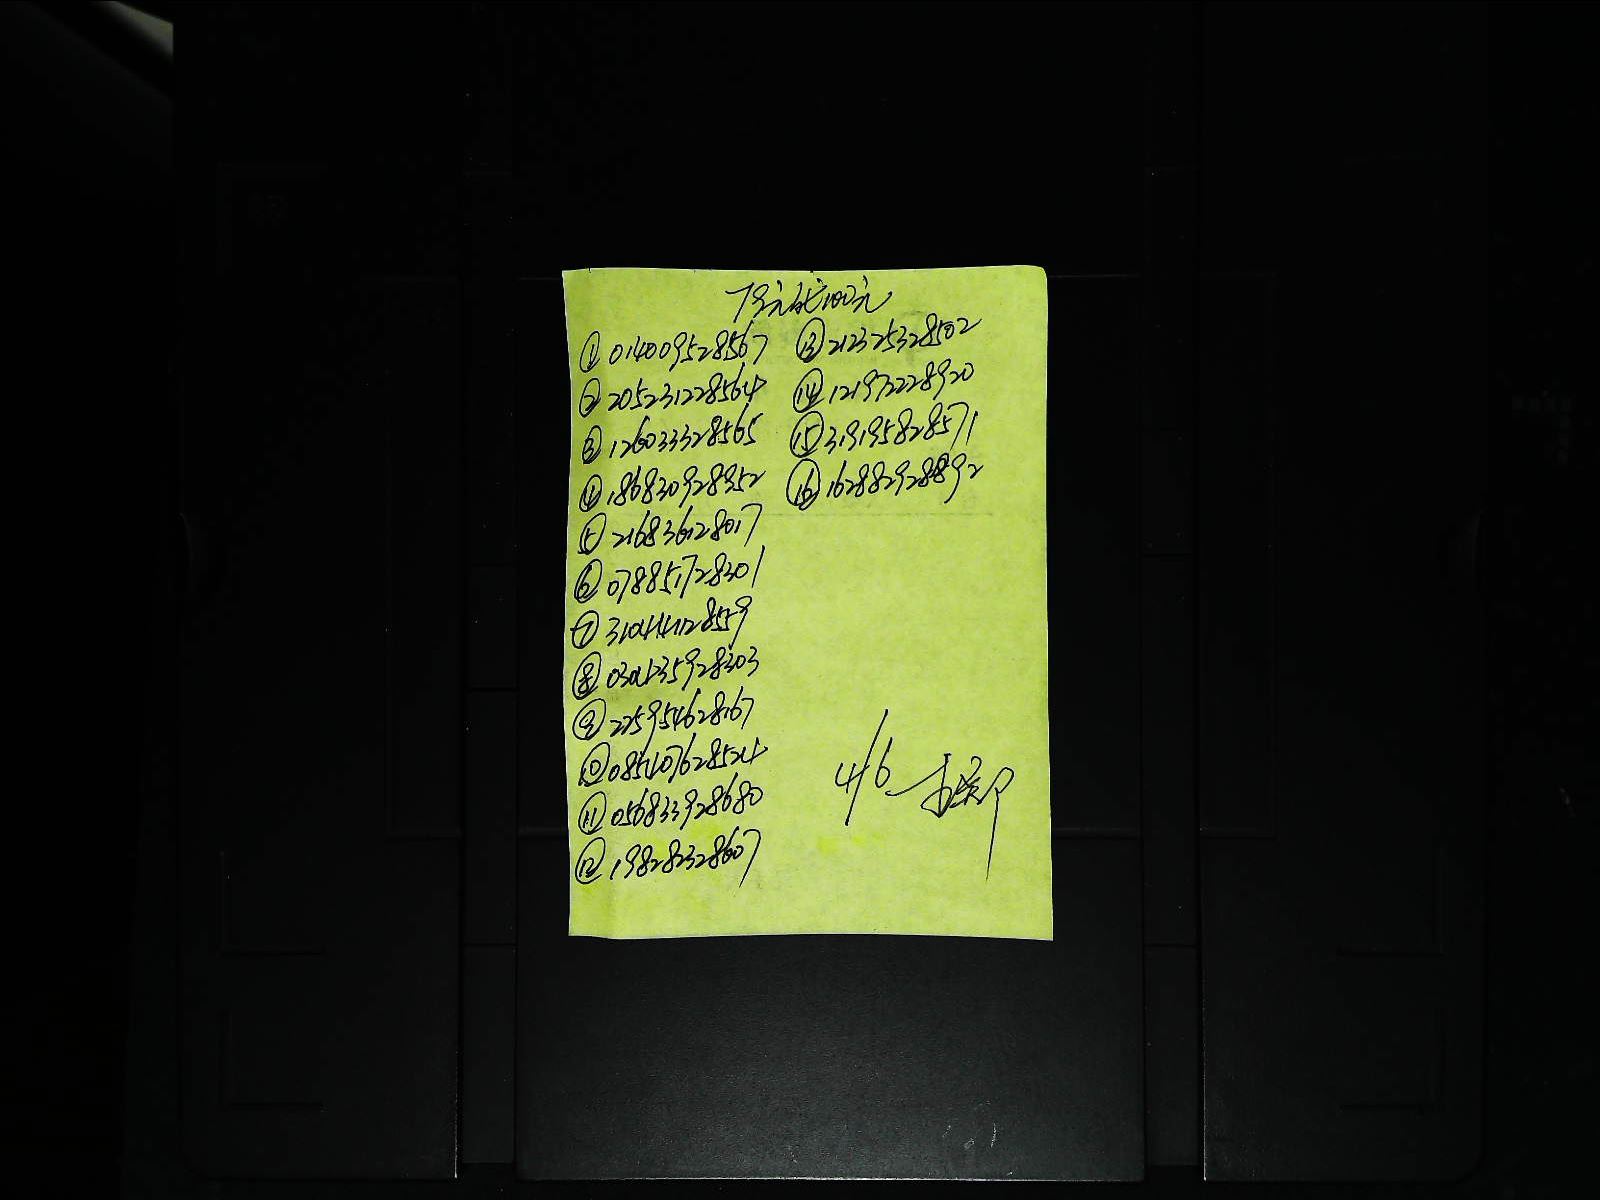 79元成100元
① 014009528567
② 205231228564
③ 126033328565
④ 186830928352
⑤ 216836128017
⑥ 078851728301
⑦ 310414128559
⑧ 030435928303
⑨ 225954628167
⑩ 085407628524
⑪ 056833928680
⑫ 198282328607
⑬ 212325328502
⑭ 121972228920
⑮ 319195828571
⑯ 162882928892
4/6